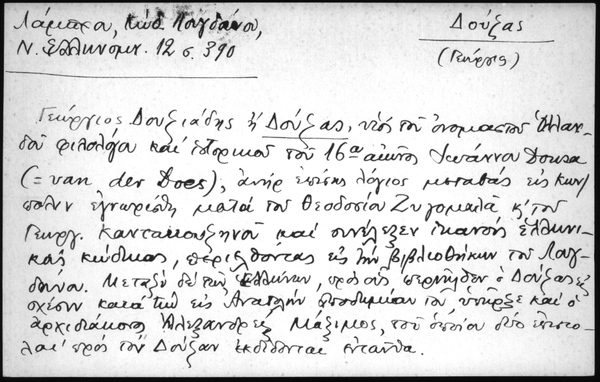 Λάμπρου, Κώδ. Λουγδούνου,
Ν. Ἑλληνομν. 12 σ. 390
Δούζας
(Γεώργιος)
Γεώργιος Δουζιάδης ἢ Δούζας, υἱὸς τοῦ ὀνομαστοῦ Ὁλλαν-
δοῦ φιλολόγου καὶ ἱστορικοῦ τοῦ 16α αἰῶνος Ἰωάννου Dousa
(= van der Does), ἀνὴρ ἐπίσης λόγιος μεταβὰς εἰς Κων/
πολιν ἐγνωρίσθη μετὰ τοῦ Θεοδοσίου Ζυγομαλᾶ κ' τοῦ
Γεωργ. Καντακουζηνοῦ καὶ συνέλεξεν ἱκανοὺς ἑλληνι-
κοὺς κώδικας, περιελθόντας εἰς τὴν βιβλιοθήκην τοῦ Λουγ-
δούνου. Μεταξὺ δὲ τῶν Ἑλλήνων, πρὸς οὓς ὁ Δούζας εἰς
σχέσιν κατὰ τὴν εἰς Ἀνατολὴν ἀποδημίαν του ὑπῆρξε καὶ ὁ
ἀρχιδιάκονος Ἀλεξανδρείας Μάξιμος, τοῦ ὁποίου δύο ἐπιστο-
λαὶ πρὸς τὸν Δούζαν ἐκδίδονται ἐνταῦθα.